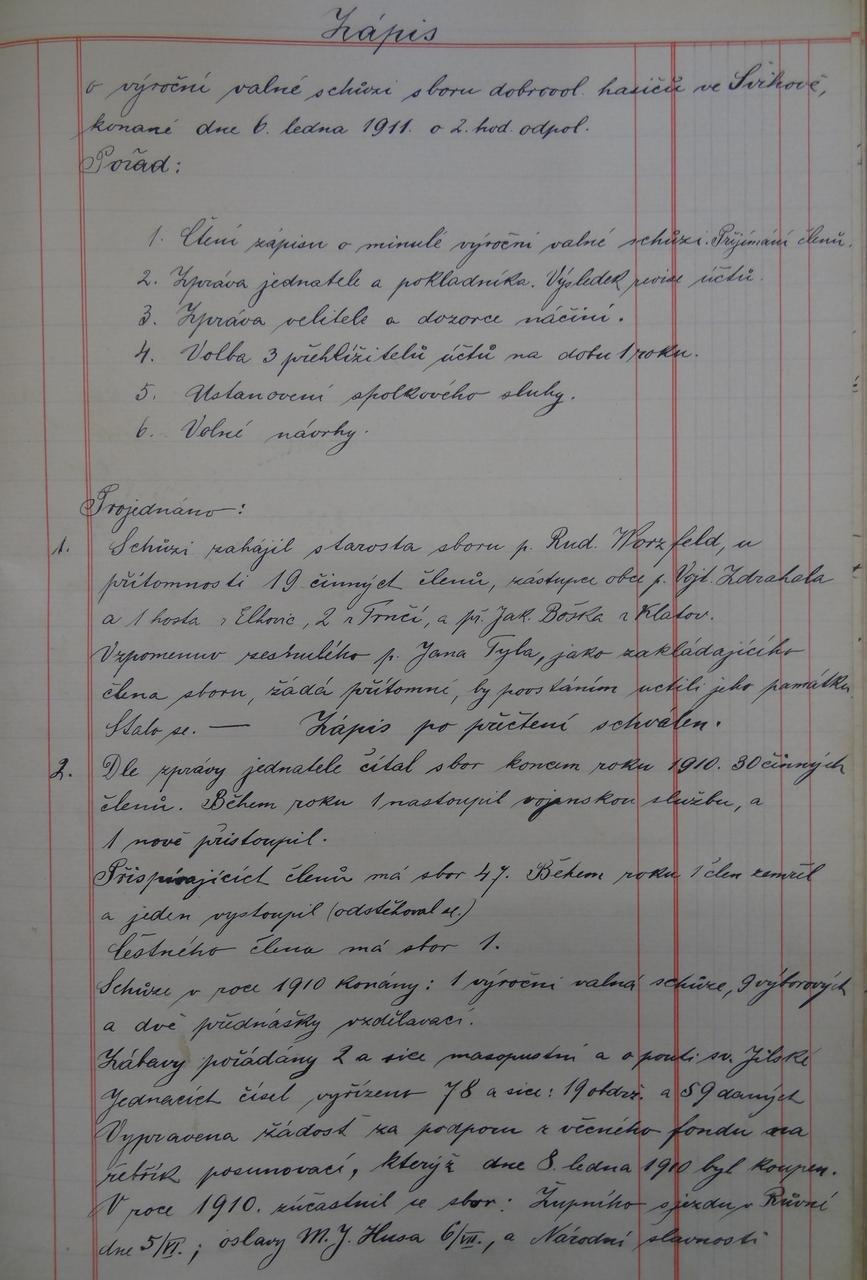 Zápis
o výroční valné schůzi sboru dobrovol. hasičů ve Švihově,
konané dne 6. ledna 1911. o 2. hod. odpol.
Pořad:
1. Čtení zápisu o minulé výroční valné schůzi. Přijímání členů.
2. Zpráva jednatele a pokladníka. Výsledek revise účtů.
3. Zpráva velitele a dozorce náčiní.
4. Volba 3 přehlížitelů účtů na dobu 1 roku.
5. Ustanovení spolkového sluhy.
6. Volné návrhy.
Projednáno:
1. Schůzi zahájil starosta sboru p. Rud. Worzfeld, u
přítomnosti 19 činných členů, zástupce obce p. Vojt. Zdrahala
a 1 hosta z Elhovic, 2 z Trnčí, a př. Jak. Boška z Klatov.
Vzpomenuv zesnulého p. Jana Tyla, jako zakládajícího
člena sboru, žádá přítomní, by povstáním uctili jeho památku.
Stalo se. — Zápis po přečtení schválen.
2. Dle zprávy jednatele čítal sbor koncem roku 1910. 30 činných
členů. Během roku 1 nastoupil vojenskou službu, a
1 nově přistoupil.
Přispívajících členů má sbor 47. Během roku 1 člen zemřel
a jeden vystoupil (odstěhoval se.)
Čestného člena má sbor 1.
Schůze v roce 1910 konány: 1 výroční valná schůze, 9 výborových
a dvě přednášky vzdělavací.
Zábavy pořádány 2 a sice masopustní a o pouti sv. Jilské
Jednacích čísel vyřízeno 78 a sice: 19 obdrž. a 59 daných
Vypravena žádost za podporu z věcného fondu na
řebřík posunovací, kterýž dne 8. ledna 1910 byl koupen.
V roce 1910. zúčastnil se sbor: Župního sjezdu v
dne 5/VI.; oslavy M. J. Husa 6/VII., a Národní slavnosti